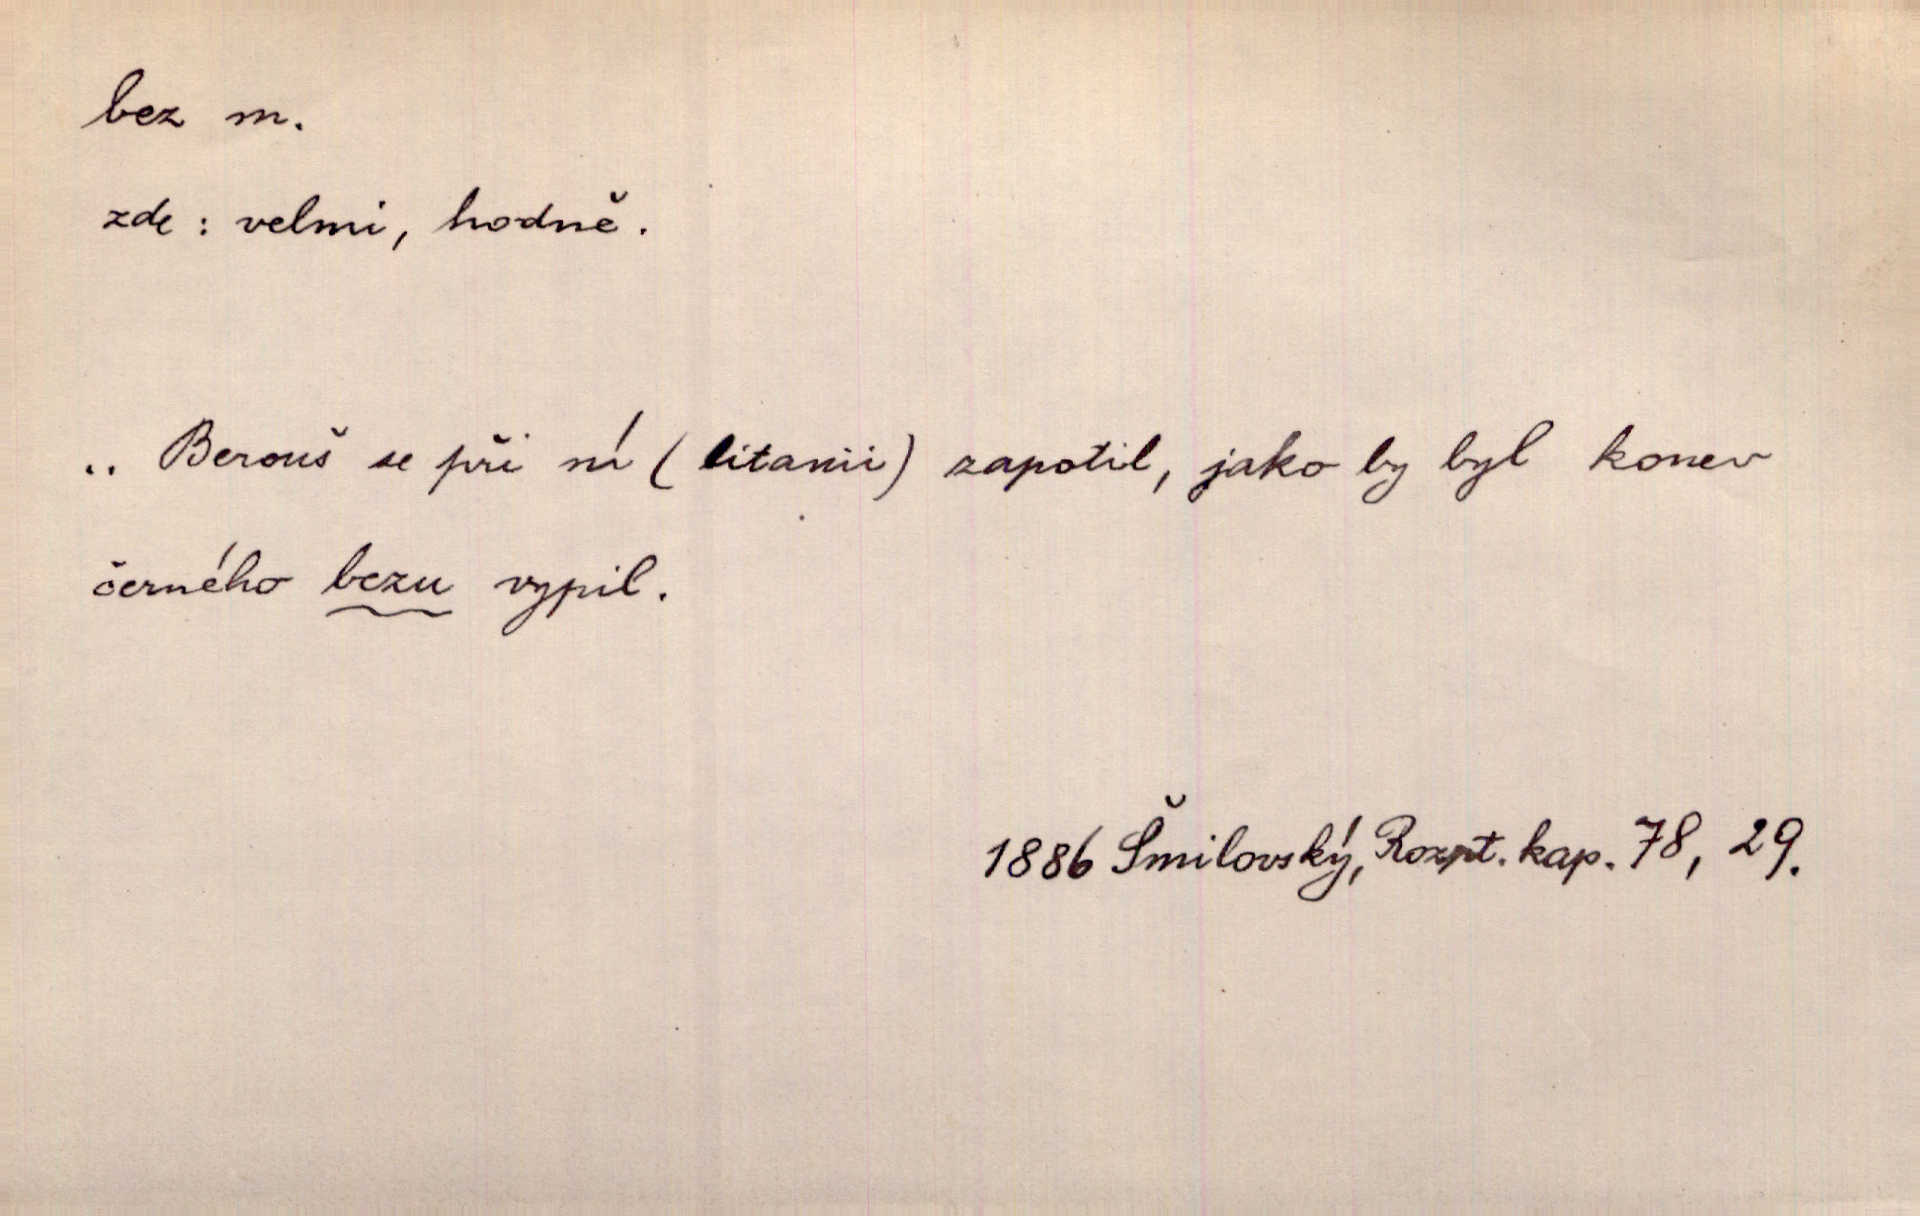 bez m.
zde : velmi, hodně.
.. Berouš se při ní (litanii) zapotil, jako by byl konev
černého bezu vypil.
1886 Šmilovský, Rozpt. kap. 78, 29.